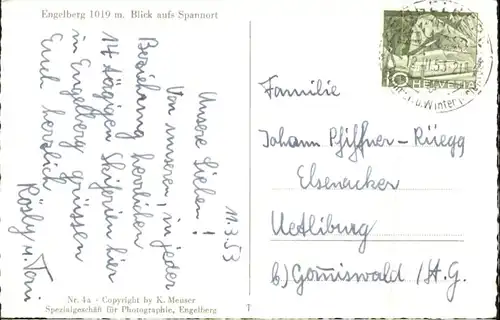 Engelberg 1019 m. Blick aufs Spannort
11.3.53
Unsere Lieben!
Von unseren, in jeder
Beziehung herrlichen
14 tägigen Skiferien hier
in Engelberg grüssen
Euch herzlich
Rösly u. Toni
Nr. 4a - Copyright by K. Meuser
Spezialgeschäft für Photographie, Engelberg
10 HELVETIA
Familie
Johann Pfiffner-Rüegg
Elsenacker
Uetliburg
b/ Gomiswald /St. G.